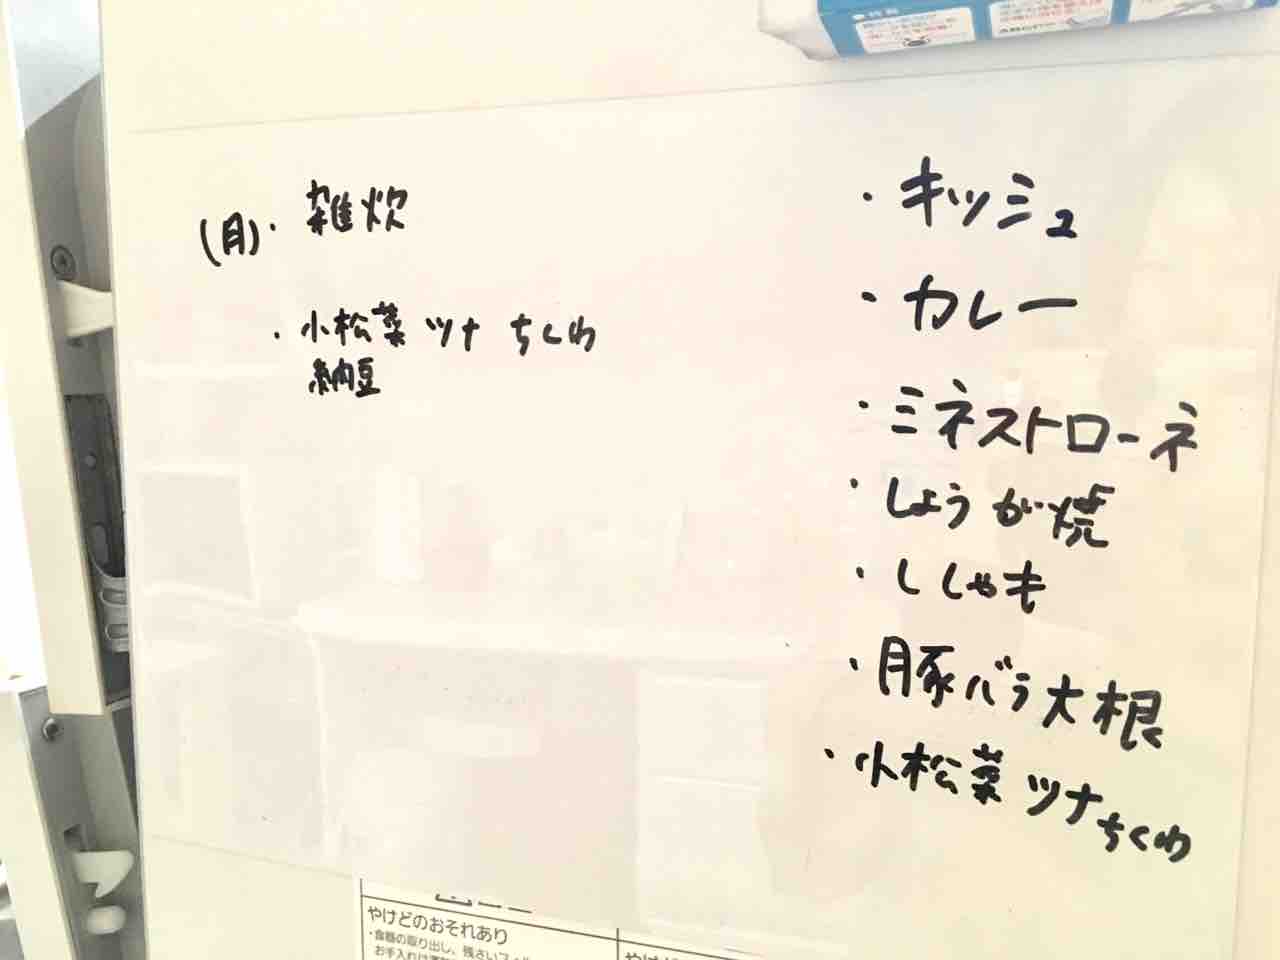 (月)・雑炊
・小松菜 ツナ ちくわ
納豆
・キッシュ
・カレー
・ミネストローネ
・しょうが焼
・ししゃも
・豚バラ大根
・小松菜 ツナちくわ
やけどのおそれあり
・食器の取り出し、残さいフィ
お手入れは運転
やけど